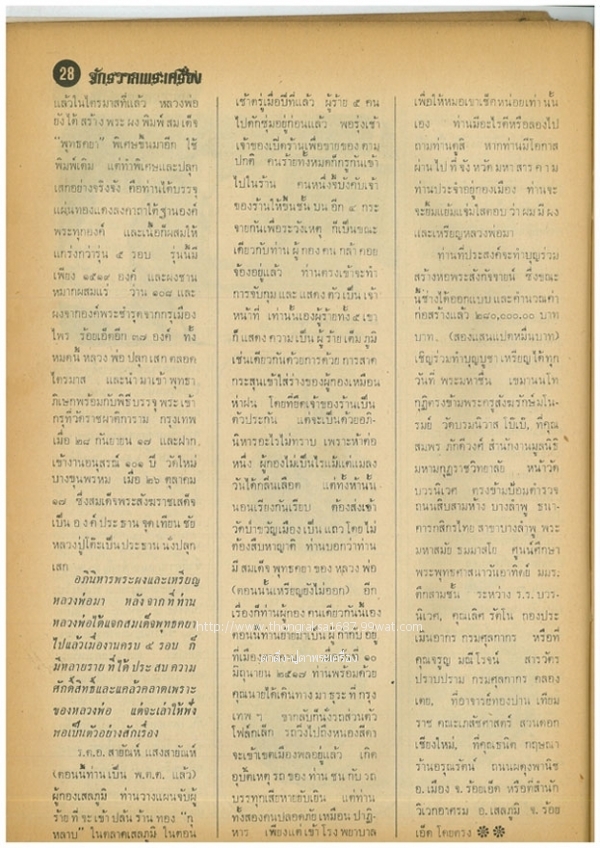 28 จักรวาลพระเครื่อง
แล้วในไตรมาสที่แล้ว หลวงพ่อ
ยังได้สร้างพระผงพิมพ์สมเด็จ
"พุทธคยา" พิเศษขึ้นมาอีก ใช้
พิมพ์เดิม แต่ทำพิเศษและปลุก
เสกอย่างจริงจัง คือท่านได้บรรจุ
แผ่นทองแดงลงคาถาใต้ฐานองค์
พระทุกองค์ และเนื้อก็ผสมให้
แกร่งกว่ารุ่น ๕ รอบ รุ่นนี้มี
เพียง ๑๕๑๙ องค์ และผงชาน
หมากผสมแร่ ว่าน ๑๐๘ และ
ผงจากองค์พระชำรุดจากกรุเมือง
ไพร ร้อยเอ็ดอีก ๓๗ องค์ ทั้ง
หมดนี้หลวงพ่อปลุกเสกตลอด
ไตรมาส และนำมาเข้าพุทธา
ภิเษกพร้อมกับพิธีบรรจุพระเข้า
กรุที่วัดราชผาติการาม กรุงเทพ
เมื่อ ๒๘ กันยายน ๑๗ และฝาก
เข้างานอนุสรณ์ ๑๐๑ ปี วัดใหม่
บางขุนพรหม เมื่อ ๒๖ ตุลาคม
๑๗ ซึ่งสมเด็จพระสังฆราชเสด็จ
เป็นองค์ประธานจุดเทียนชัย
หลวงปู่โต๊ะเป็นประธานนั่งปลุก
เสก
อภินิหารพระผงและเหรียญ
หลวงพ่อมา หลังจากที่ท่าน
หลวงพ่อได้แจกสมเด็จพุทธคยา
ไปแล้วเมื่องานครบ ๕ รอบ ก็
มีหลายรายที่ได้ประสบความ
ศักดิ์สิทธิ์และแคล้วคลาดเพราะ
ของหลวงพ่อ แต่จะเล่าให้ฟัง
พอเป็นตัวอย่างสักเรื่อง
ร.ต.อ. สายัณห์ แสงสายัณห์
(ตอนนี้ท่านเป็น พ.ต.ต. แล้ว)
ผู้กองเสลภูมิ ท่านวางแผนจับผู้
ร้ายที่จะเข้าปล้นร้านทอง "กุ
หลาบ" ในตลาดเสลภูมิ ในตอน
เช้าตรู่เมื่อปีที่แล้ว ผู้ร้าย ๕ คน
ไปดักซุ่มอยู่ก่อนแล้ว พอรุ่งเช้า
เจ้าของเปิดร้านเพื่อขายของตาม
ปกติ คนร้ายทั้งหมดก็กรูกันเข้า
ไปในร้าน คนหนึ่งจี้บังคับเจ้า
ของร้านให้ขึ้นชั้นบน อีก ๔ กระ
จายกันเพื่อระวังเหตุ ก็เป็นขณะ
เดียวกับท่านผู้กองคนกล้าคอย
จ้องอยู่แล้ว ท่านตรงเข้าจะทำ
การจับกุมและแสดงตัวเป็นเจ้า
หน้าที่ เท่านั้นเองผู้ร้ายทั้ง ๕ เขา
ก็แสดงความเป็นผู้ร้ายเต็มภูมิ
เช่นเดียวกันด้วยการด้วยการสาด
กระสุนเข้าใส่ร่างของผู้กองเหมือน
ห่าฝน โดยที่ยึดเจ้าของร้านเป็น
ตัวประกัน แต่จะเป็นด้วยอภิ-
นิหารอะไรไม่ทราบ เพราะห้าต่อ
หนึ่ง ผู้กองไม่เป็นไรแม้แต่แมลง
วันได้กลิ่นเลือด แต่ทั้งห้านั้น
นอนเรียงกันเรียบ ต้องส่งเข้า
วัดบำขวัญเมืองเป็นแถวโดยไม่
ต้องสืบหาญาติ ท่านบอกว่าท่าน
มีสมเด็จพุทธคยาของหลวงพ่อ
(ตอนนั้นเหรียญยังไม่ออก) อีก
เรื่องก็ท่านผู้กองคนเดียวกันนี้เอง
ตอนนี้ท่านย้ายมาเป็นผู้กำกับอยู่
ที่เมืองสารคาม เมื่อวันที่ ๑๐
มิถุนายน ๒๕๑๗ ท่านพร้อมด้วย
คุณนายได้เดินทางมาธุระที่กรุง
เทพ ฯ ขากลับก็นั่งรถส่วนตัว
โฟล์กเล็ก รถวิ่งไปถึงหนองสีดา
จะเข้าเขตเมืองพลอยู่แล้ว เกิด
อุบัติเหตุรถของท่านชนกับรถ
บรรทุกเสียหายยับเยิน แต่ท่าน
ทั้งสองคนปลอดภัยเหมือนปาฏิ-
หาร เพียงแต่เข้าโรงพยาบาล
เพื่อให้หมอเขาเช็คหน่อยเท่านั้น
เอง ท่านมีอะไรดีหรือลองไป
ถามท่านดูสิ หากท่านมีโอกาส
ผ่านไปที่จังหวัดมหาสารคาม
ท่านประจำอยู่กองเมือง ท่านจะ
จะยิ้มแย้มแจ่มใสตอบว่าผมมีผง
และเหรียญหลวงพ่อมา
ท่านที่ประสงค์จะทำบุญร่วม
สร้างหอพระสังกัจจายน์ ซึ่งขณะ
นี้ช่างได้ออกแบบและคำนวณค่า
ก่อสร้างแล้ว ๒๘๐,๐๐๐.๐๐ บาท
บาท. (สองแสนแปดหมื่นบาท)
เชิญร่วมทำบุญบูชาเหรียญได้ทุก
วันที่ พระมหาชื่น เขมานนโท
กุฏิตรงข้ามพระครูสังฆรักษ์มโน-
รมย์ วัดบรมนิวาส โบ๊เบ๊, ที่คุณ
สมพร ภักดีวงศ์ สำนักงานมูลนิธิ
มหามกุฏราชวิทยาลัย หน้าวัด
บวรนิเวศ ตรงข้ามป้อมตำรวจ
ถนนสิบสามห้าง บางลำพู ธนา-
คารกสิกรไทย สาขาบางลำพู พระ
มหาสมัย ธมมาสโย ศูนย์ศึกษา
พระพุทธศาสนาวันอาทิตย์ มมร.
ตึกสามชั้น ระหว่าง ร.ร. บวร-
นิเวศ, คุณเลิศ รัตโน กองประ
เมินอากร กรมศุลกากร หรือที่
คุณจรูญ มณีโรจน์ สารวัตร
ปราบปราม กรมศุลกากร คลอง
เตย, ที่อาจารย์ทองปาน เทียม
ราช คณะเภสัชศาสตร์ สวนดอก
เชียงใหม่, ที่คุณธนิต กฤษณา
ร้านอรุณรัตน์ ถนนผดุงพานิช
อ. เมือง จ. ร้อยเอ็ด หรือที่สำนัก
วิเวกอาศรม อ. เสลภูมิ จ. ร้อย
เอ็ด โดยตรง